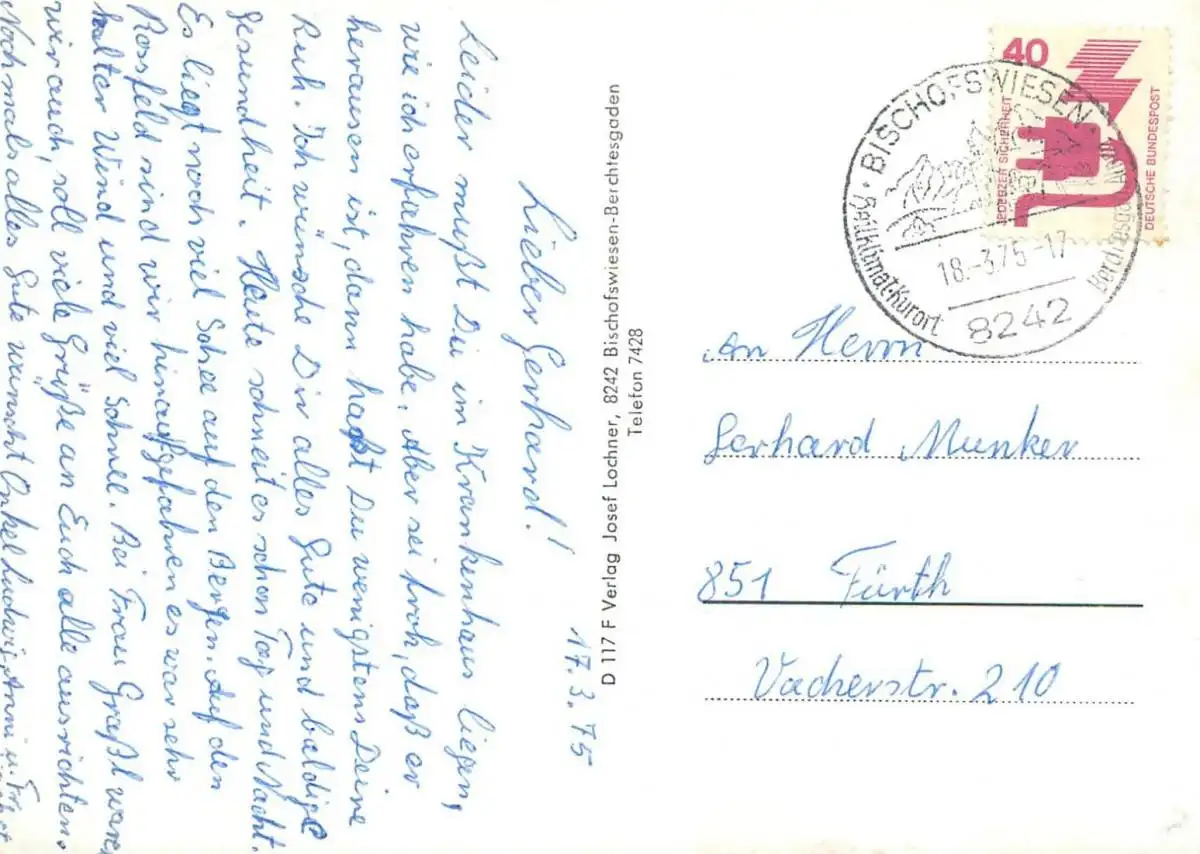 17.3.75
Lieber Gerhard!
Leider mußt Du im Krankenhaus liegen,
wie ich erfahren habe. Aber sei froh, daß er
herausen ist, dann hast Du wenigstens Deine
Ruh. Ich wünsche Dir alles Gute und baldige
Gesundheit. Heute schneit es schon Tag und Nacht.
Es liegt noch viel Schee auf den Bergen. Auf den
Rossfeld sind wir hinaufgefahren es war sehr
kalter Wind und viel Schnee. Bei Frau Graßl waren
wir auch, soll viele Grüße an Euch alle ausrichten.
Nochmals alles Gute wünscht Onkel Ludwig, Anni u.
D 117 F Verlag Josef Lochner, 8242 Bischofswiesen-Berchtesgaden
Telefon 7428
40
JEDERZEIT SICHERHEIT
DEUTSCHE BUNDESPOST
BISCHOFSWIESEN
Heilklimat. Kurort
18.-3.75-17
8242
An Herrn
Gerhard Munker
851 Fürth
Vacherstr. 210